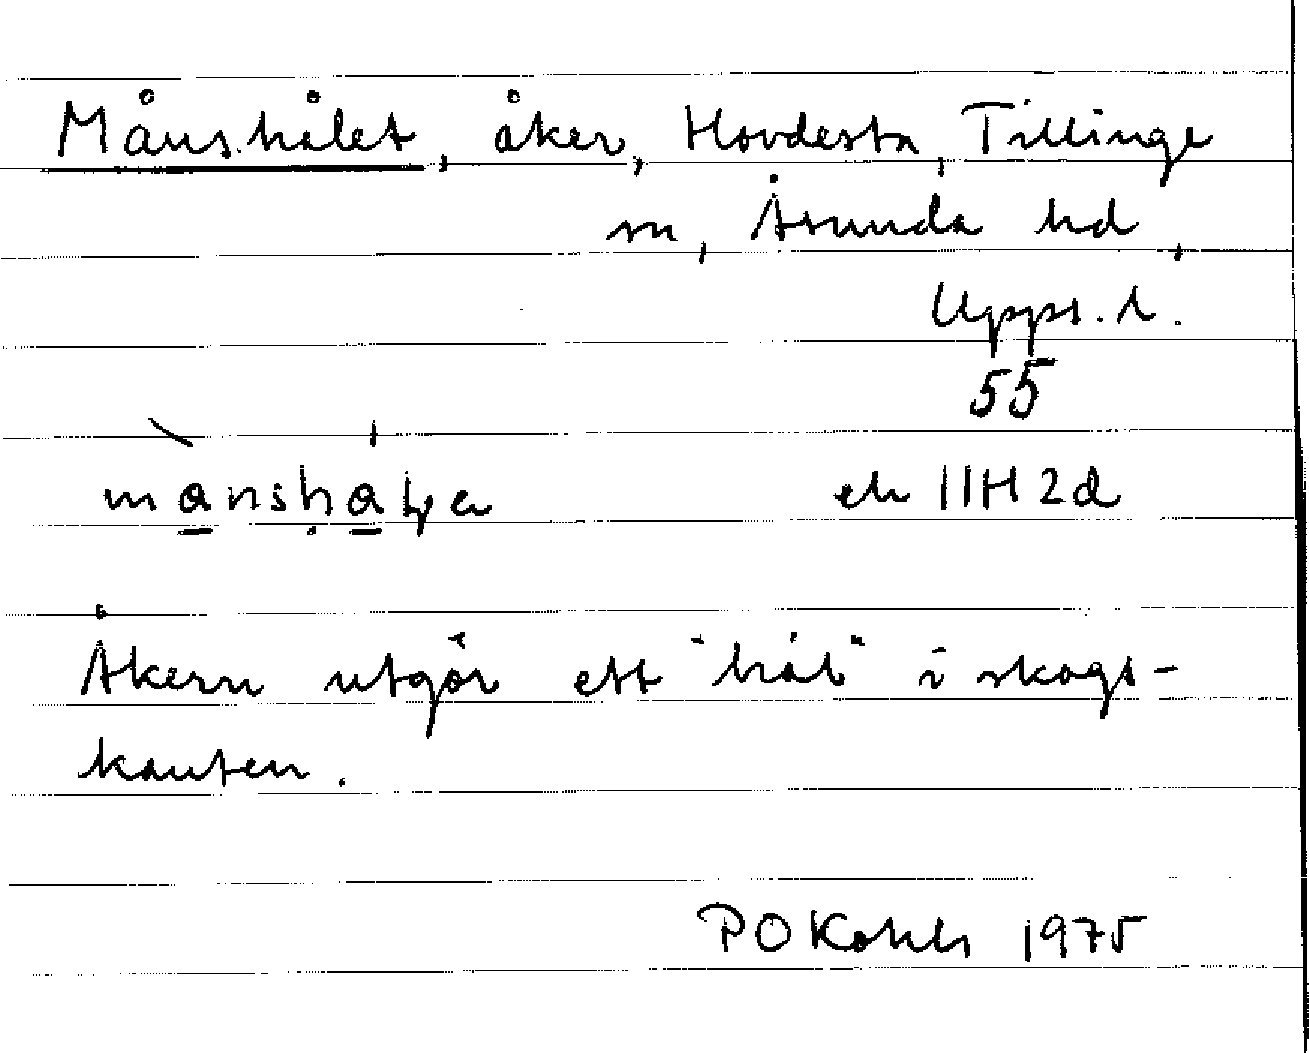 Månshålet, åker, Hovdesta, Tillinge
sn, Åsunda hd,
Upps. l.
55
ek 11H2d
Åkern utgör ett "hål" i skogs-
kanten.
PO 1975